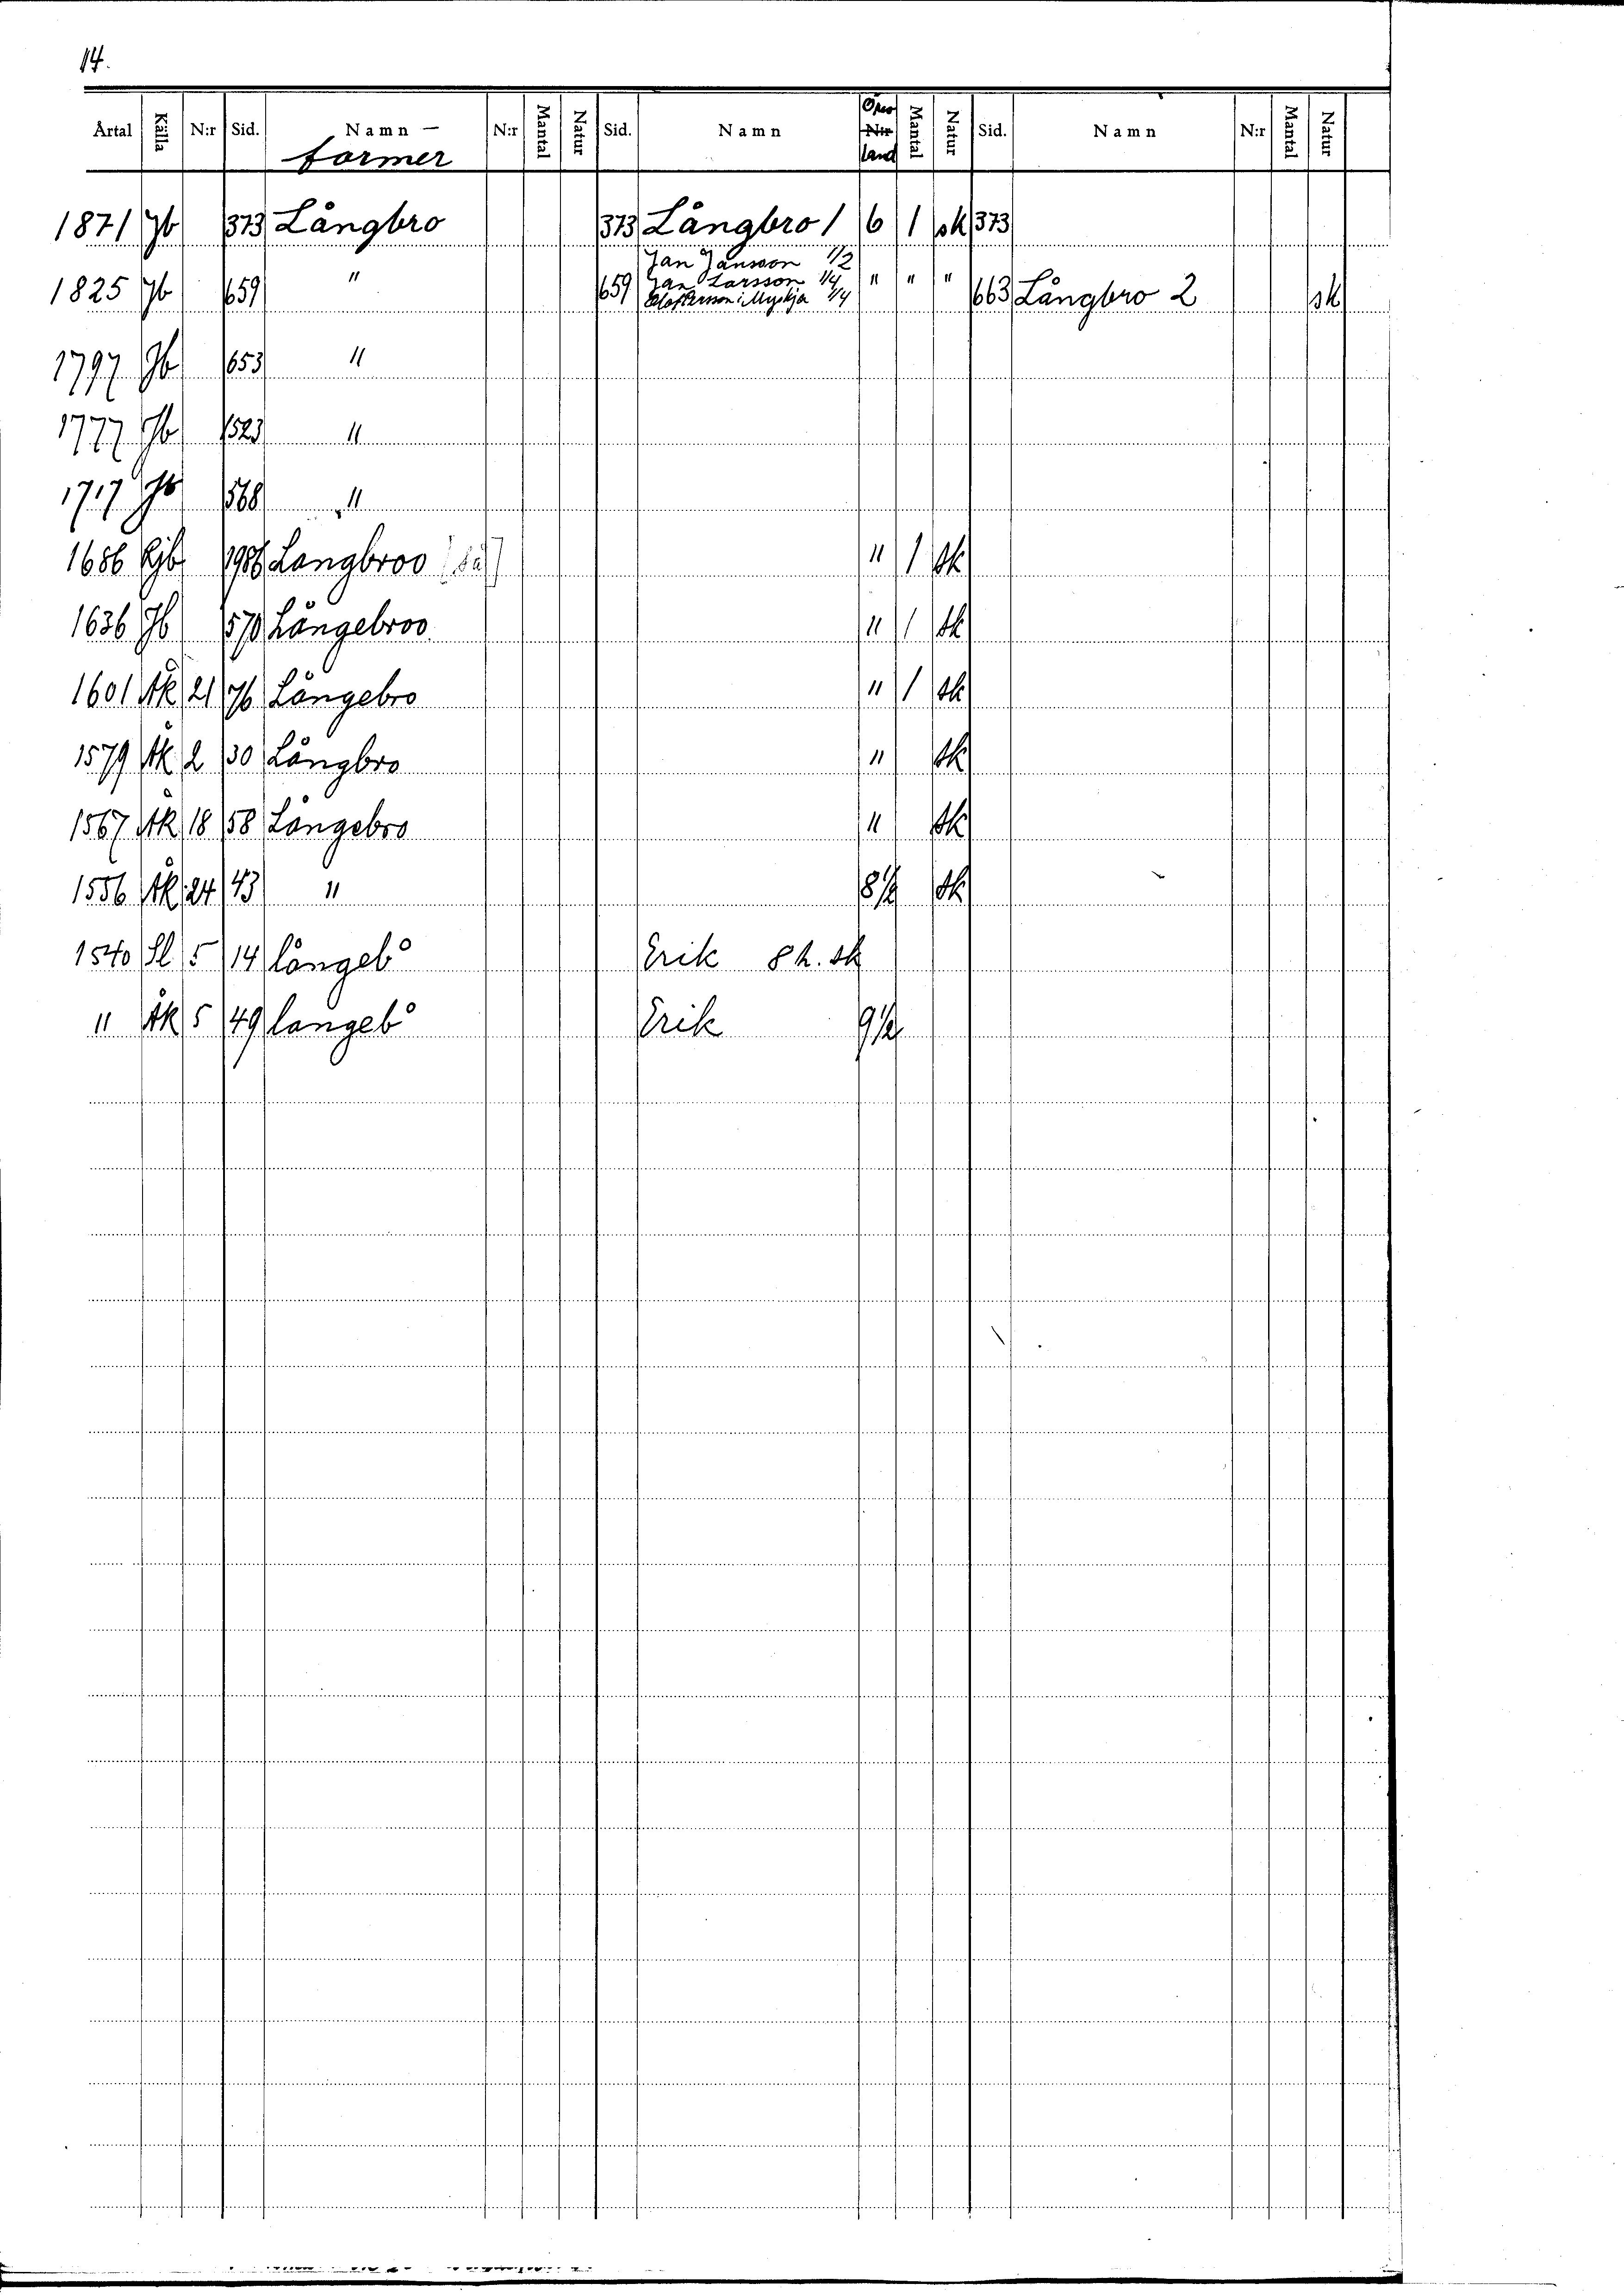 14.
Årtal Källa N:r Sid. Namn — former N:r Mantal Natur Sid. Namn Öresland Mantal Natur Sid. Namn N:r Mantal Natur
1871 Jb 373 Långbro 373 Långbro 1 6 1 sk 373
Jan Jansson 1/2
1825 Jb 659 " 659 Jan Larsson 1/4 " " " 663 Långbro 2 sk
Olof Persson i Myskja 1/4
1797 Jb 653 "
1777 Jb 523 "
1717 Jb 568 "
1686 1986 Langbroo [så] " 1 sk
1636 Jb 570 Långebroo " 1 sk
1601 Åk 21 76 Långebro " 1 sk
1579 Åk 2 30 Långbro " sk
1567 Åk 18 58 Långebro " sk
1556 Åk 24 43 " 8 1/2 sk
1540 Sl 5 14 långeb° Erik 8 h. sk
" Åk 5 49 langeb° Erik 9 1/2